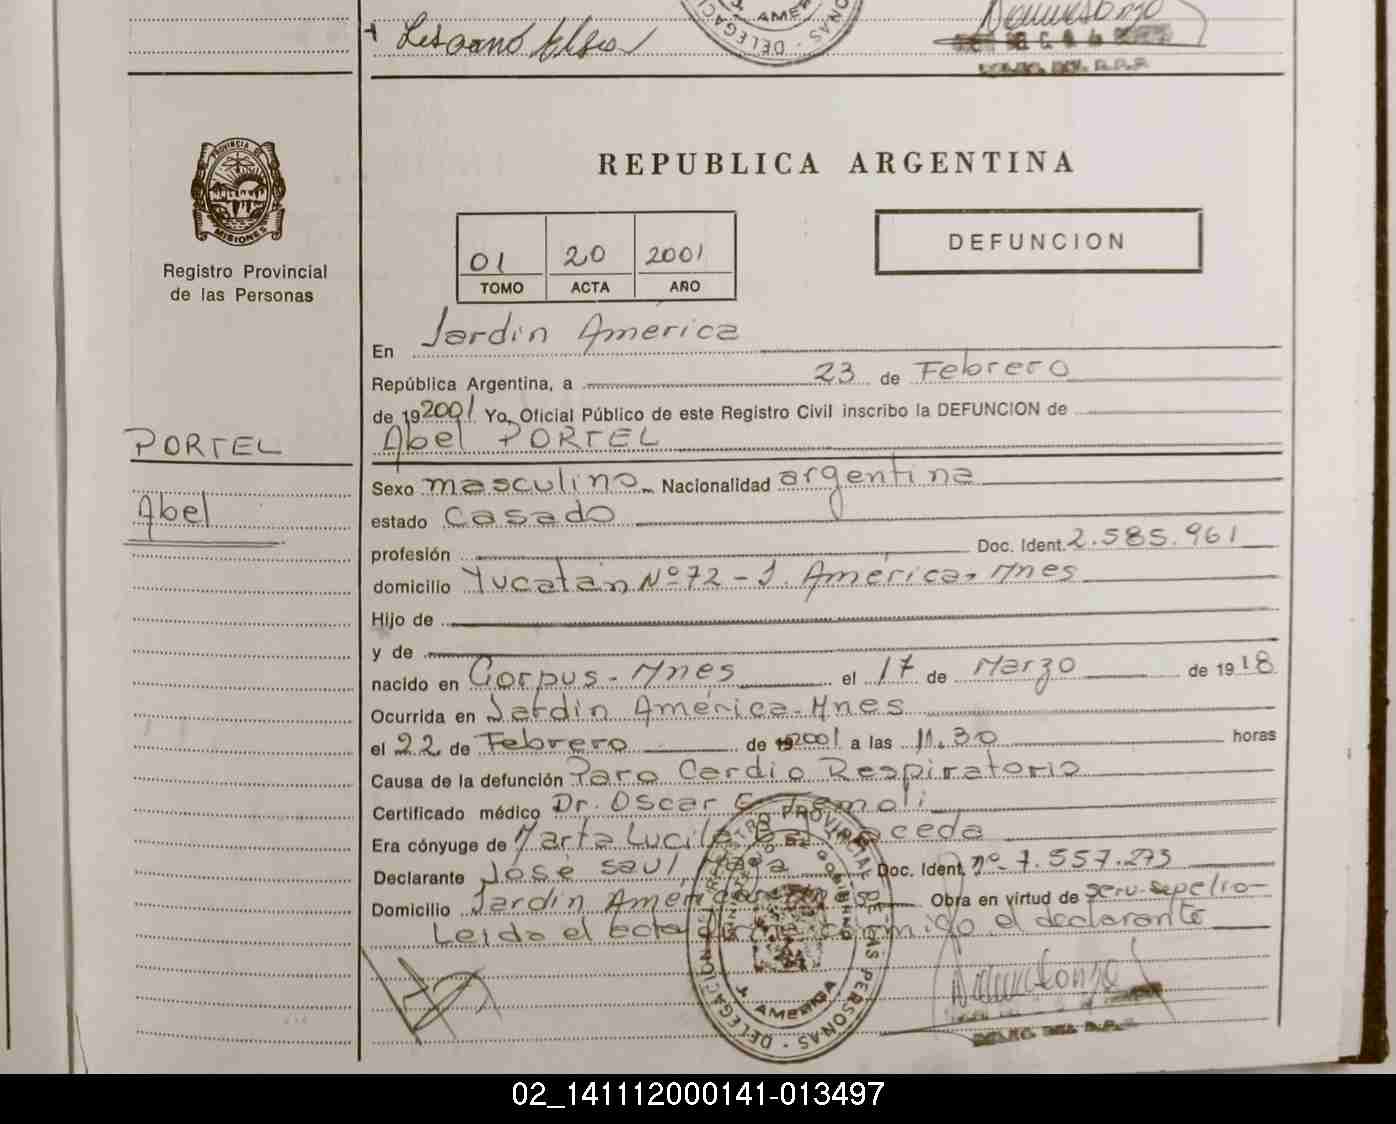 Lescano Elsa
AMER
DELEGACI
NAS
PROVINCIA DE
MISIONES
Registro Provincial
de las Personas
REPUBLICA ARGENTINA
01 20 2001
TOMO ACTA AÑO
DEFUNCION
En Jardin America
República Argentina, a 23 de Febrero
de 19 2001 Yo, Oficial Público de este Registro Civil inscribo la DEFUNCION de
Abel PORTEL
PORTEL
Abel
Sexo masculino Nacionalidad argentina
estado casado
profesión Doc. Ident. 2.585.961
domicilio Yucatán Nº 72 - J. América, Mnes
Hijo de
y de
nacido en Corpus - Mnes el 17 de Marzo de 1918
Ocurrida en Jardin América - Mnes
el 22 de Febrero de 19 2001 a las 11.30 horas
Causa de la defunción Paro Cardio Respiratorio
Certificado médico Dr. Oscar
Era cónyuge de Marta Lucila
Declarante José Saul Doc. Ident. nº 7.557.273
Domicilio Jardin América Obra en virtud de serv. sepelio-
Leido el acta conmigo el declarante
REGISTRO PROVINCIAL DE LAS PERSONAS - DELEGACION
J. AMERICA
02_141112000141-013497